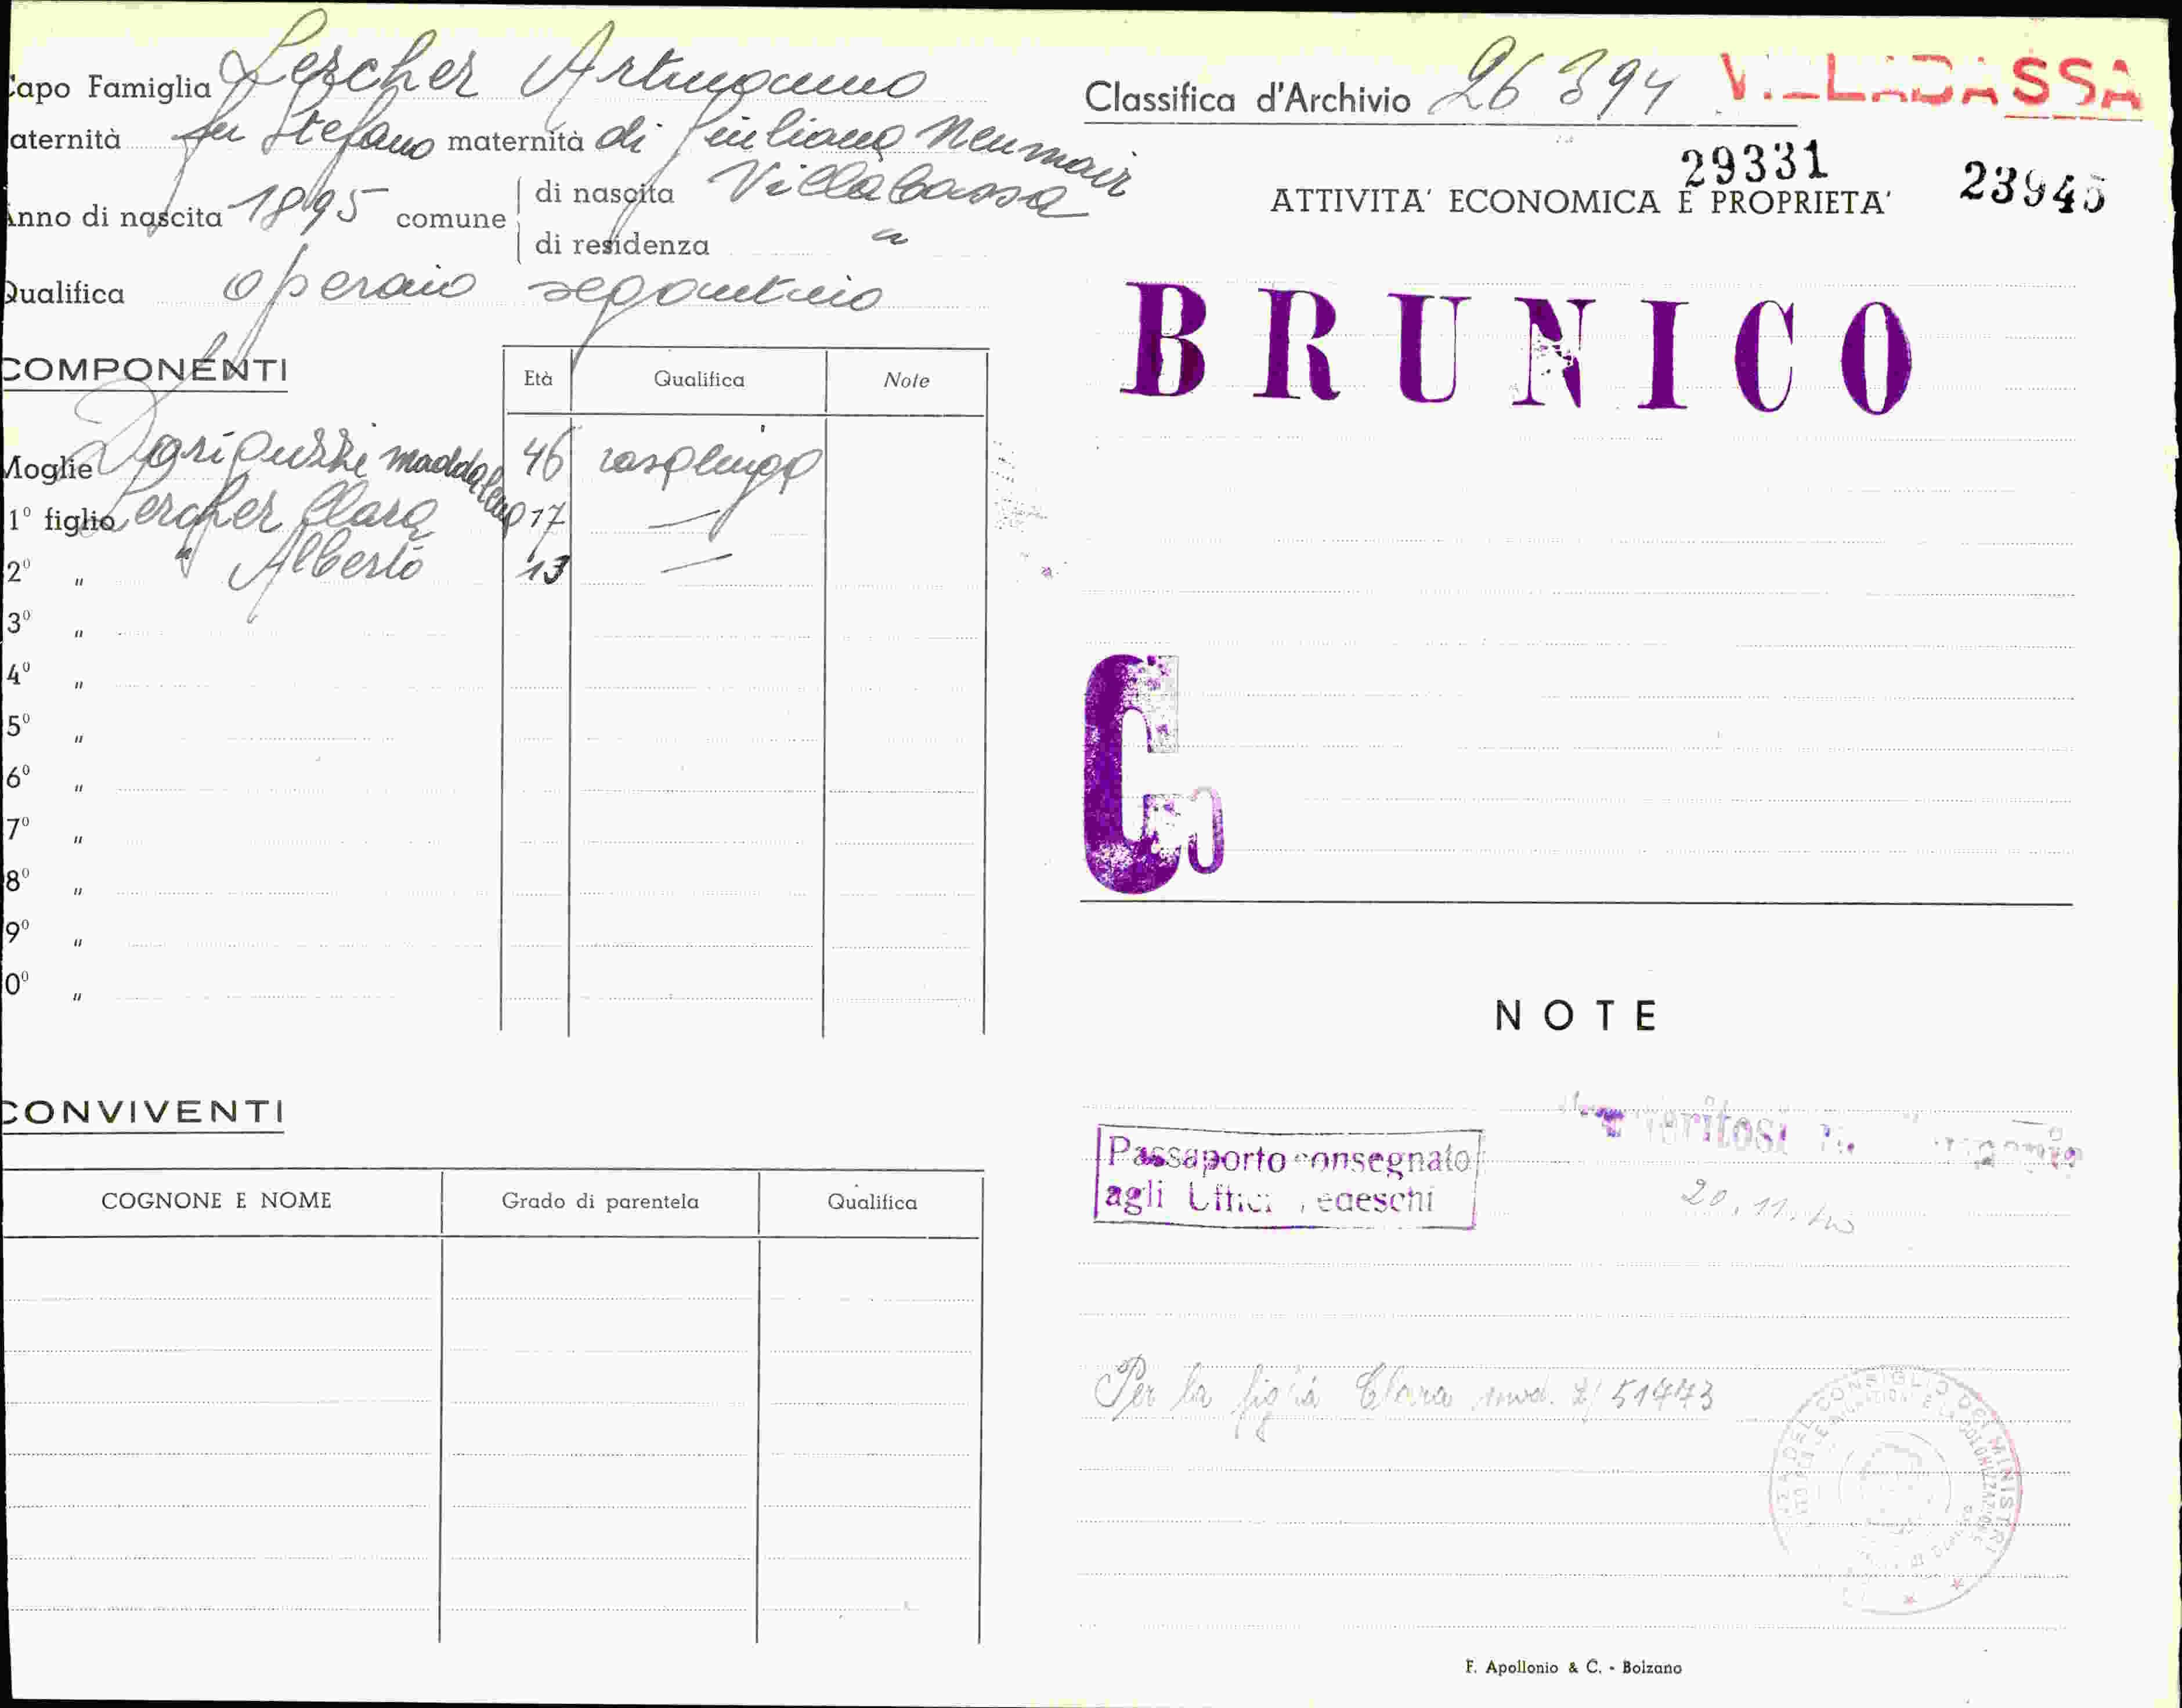 Capo Famiglia Lercher
aternità fu Stefano maternità di Giuliana Neumair
Anno di nascita 1895 comune di nascita Villabassa
di residenza "
Qualifica operaio segantino
COMPONENTI Età Qualifica Note
Moglie Maddalena 46 casalinga
1° figlio Lercher Clara 17 —
2° " " Alberto 13 —
3° "
4° "
5° "
6° "
7° "
8° "
9° "
0° "
CONVIVENTI
COGNONE E NOME Grado di parentela Qualifica
Classifica d'Archivio 26394 VILLABASSA
29331 23945
ATTIVITA' ECONOMICA E PROPRIETA'
BRUNICO
C
NOTE
Passaporto consegnato
agli Uffici Tedeschi
20.11.40
Per la figlia Clara mod. 51473
F. Apollonio & C. - Bolzano